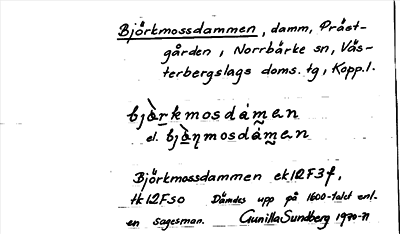 Björkmossdammen, damm, Präst-
gården, Norrbärke sn, Väs-
terbergslags doms. tg, Kopp.l.
bjàrkmosdámen
el. bjàηmosdámen
Björkmossdammen ek12F3f,
tk12FSO Dämdes upp på 1600-talet enl.
en sagesman. Gunilla Sundberg 1970-71